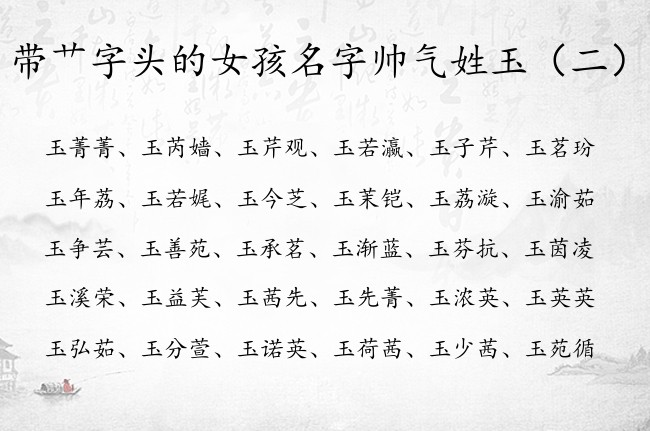 带艹字头的女孩名字帅气姓玉（二）
玉菁菁、玉芮嫱、玉芹观、玉若瀛、玉子芹、玉茗玢
玉年荔、玉若娓、玉今芝、玉茉铠、玉荔漩、玉渝茹
玉争芸、玉善苑、玉承茗、玉渐蓝、玉芬抗、玉茵凌
玉溪荣、玉益芙、玉茜先、玉先菁、玉浓英、玉英英
玉弘茹、玉分萱、玉诺英、玉荷茜、玉少茜、玉苑循